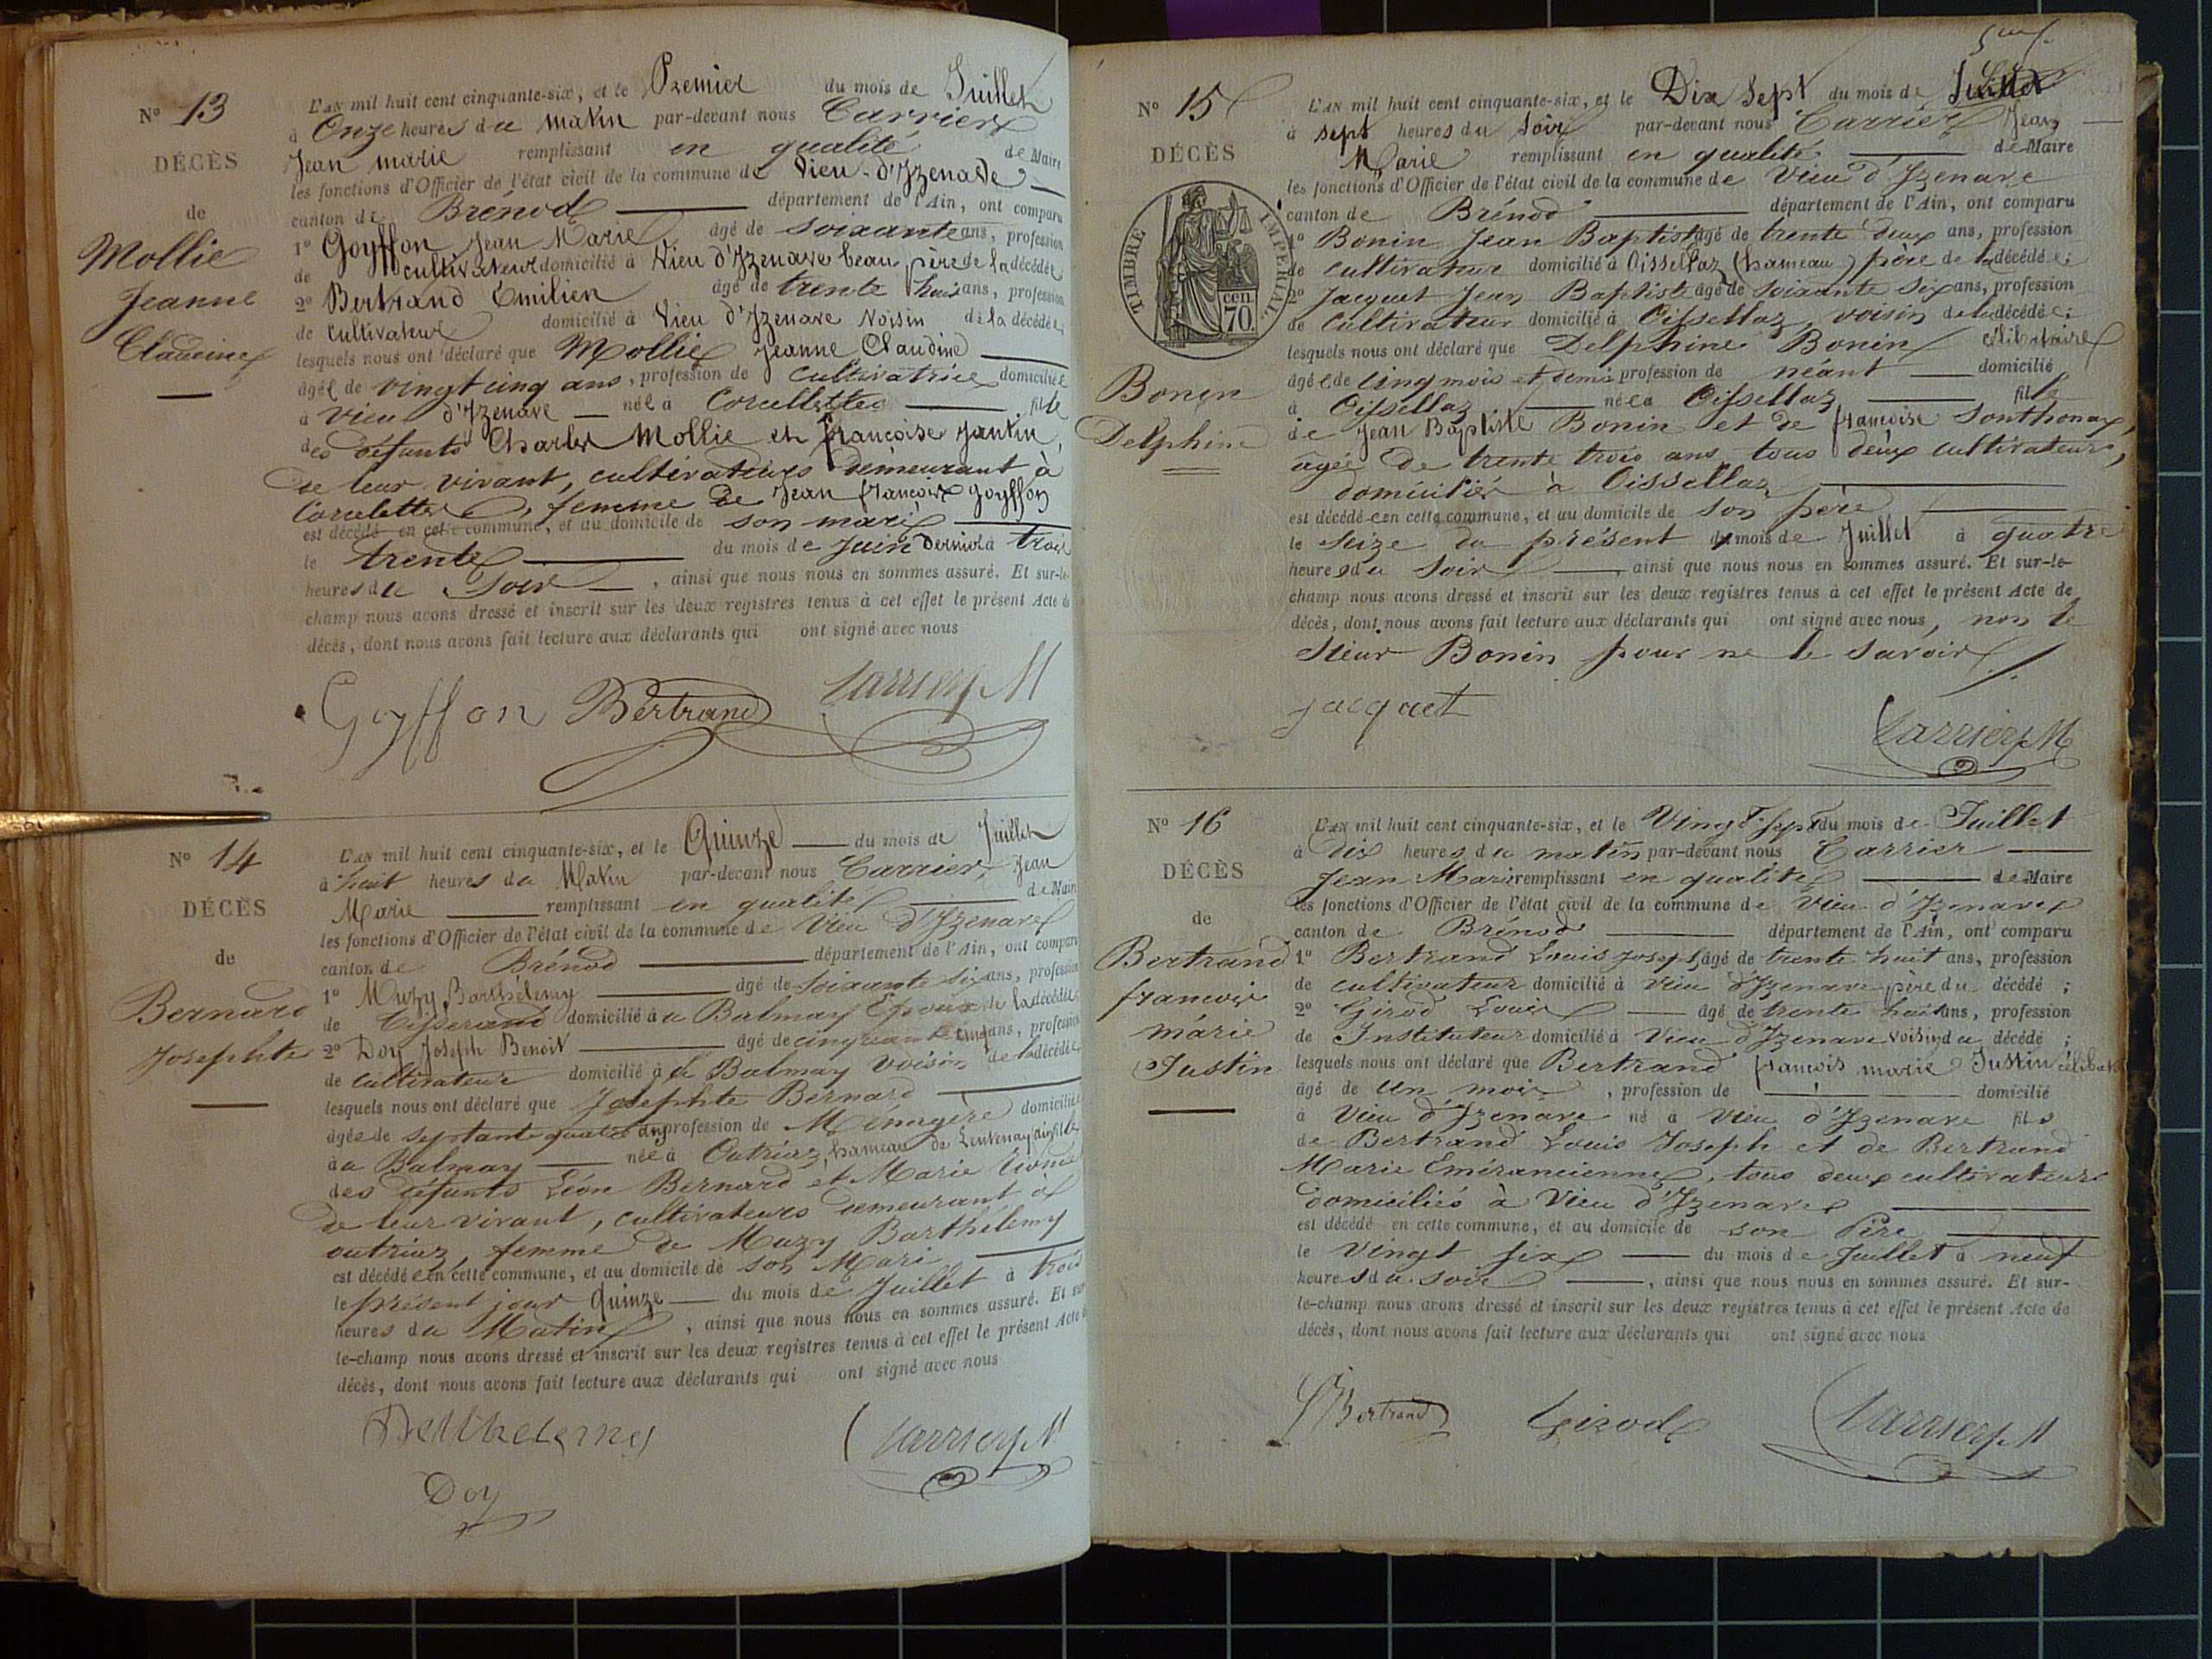 Nº 13
DÉCÈS
de
Mollie
Jeanne
Claudine
L'AN mil huit cent cinquante-six, et le Premier du mois de Juillet
à Onze heures du matin par-devant nous Carrier
Jean marie remplissant en qualité de Maire
les fonctions d'Officier de l'état civil de la commune de Vieu-d'Izenave
canton de Brenod département de l'Ain, ont comparu
1º Goyffon Jean Marie âgé de soixante ans, profession
de cultivateur domicilié à Vieu d'Izenave beau père de la décédée
2º Bertrand Emilien âgé de trente huit ans, profession
de cultivateur domicilié à Vieu d'Izenave Voisin de la décédée;
lesquels nous ont déclaré que Mollie Jeanne Claudine
âgée de vingt cinq ans, profession de cultivatrice domiciliée
à Vieu d'Izenave née à Corcelettes fille
des défunts Charles Mollie et françoise Jantin,
de leur vivant, cultivateurs demeurant à
Corcelettes, femme de Jean françois Goyffon
est décédé en cette commune, et au domicile de son mari
le trente du mois de Juin dernier à trois
heures du Soir, ainsi que nous nous en sommes assuré. Et sur-le-
champ nous avons dressé et inscrit sur les deux registres tenus à cet effet le présent Acte de
décès, dont nous avons fait lecture aux déclarants qui ont signé avec nous
Goyffon Bertrand Carrier J M
Nº 14
DÉCÈS
de
Bernard
Josephte
L'AN mil huit cent cinquante-six, et le Quinze du mois de Juillet
à huit heures du Matin par-devant nous Carrier, Jean
Marie remplissant en qualité de Maire
les fonctions d'Officier de l'état civil de la commune de Vieu d'Izenave
canton de Brénod département de l'Ain, ont comparu
1º Muzy Barthélemy âgé de soixante six ans, profession
de Tisserand domicilié à a Balmay Epoux de la décédée
2º Doy Joseph Benoit âgé de cinquante cinq ans, profession
de cultivateur domicilié à le Balmay voisin de la décédée
lesquels nous ont déclaré que Josephte Bernard
âgée de septante quatre ans profession de Ménagère domiciliée
à a Balmay née à Outriaz, hameau de Lantenay (Ain) fille
des défunts Léon Bernard et Marie
de leur vivant, cultivateurs demeurant à
outriaz, femme de Muzy Barthélemy
est décédée en cette commune, et au domicile de son Mari
le présent jour Quinze du mois de Juillet à trois
heures du Matin, ainsi que nous nous en sommes assuré. Et sur
le-champ nous avons dressé et inscrit sur les deux registres tenus à cet effet le présent Acte de
décès, dont nous avons fait lecture aux déclarants qui ont signé avec nous
Carrier J M
Doy
Nº 15
DÉCÈS
TIMBRE IMPÉRIAL
70 cen.
Bonin
Delphine
L'AN mil huit cent cinquante-six, et le Dix Sept du mois de Juillet
à sept heures du soir par-devant nous Carrier Jean
Marie remplissant en qualité de Maire
les fonctions d'Officier de l'état civil de la commune de Vieu d'Izenave
canton de Brénod département de l'Ain, ont comparu
1º Bonin Jean Baptiste âgé de trente deux ans, profession
de cultivateur domicilié à Oissellaz (hameau) père de la décédée;
2º Jacquet Jean Baptiste âgé de soixante six ans, profession
de cultivateur domicilié à Oissellaz, voisin de la décédée;
lesquels nous ont déclaré que Delphine Bonin célibataire
âgée de cinq mois et demi profession de néant domicilié
à Oissellaz née à Oissellaz fille
de Jean Baptiste Bonin et de françoise Sonthonax,
agée de trente trois ans tous deux cultivateurs,
domiciliés à Oissellaz
est décédée en cette commune, et au domicile de son père
le Seize du présent du mois de Juillet à quatre
heures du Soir, ainsi que nous nous en sommes assuré. Et sur-le-
champ nous avons dressé et inscrit sur les deux registres tenus à cet effet le présent Acte de
décès, dont nous avons fait lecture aux déclarants qui ont signé avec nous, non le
Sieur Bonin pour ne le savoir
jacquet
Carrier J M
Nº 16
DÉCÈS
de
Bertrand
françois
marie
Justin
L'AN mil huit cent cinquante-six, et le Vingt Sept du mois de Juillet
à dix heures du matin par-devant nous Carrier
Jean Marie remplissant en qualité de Maire
les fonctions d'Officier de l'état civil de la commune de Vieu d'Izenave
canton de Brénod département de l'Ain, ont comparu
1º Bertrand Louis Joseph âgé de trente huit ans, profession
de cultivateur domicilié à Vieu d'Izenave père du décédé;
2º Girod Louis âgé de trente huit ans, profession
de Instituteur domicilié à Vieu d'Izenave voisin du décédé;
lesquels nous ont déclaré que Bertrand françois marie Justin célibat
âgé de Un mois, profession de domicilié
à Vieu d'Izenave né à Vieu d'Izenave fils
de Bertrand Louis Joseph et de Bertrand
Marie Emérancienne, tous deux cultivateurs
domiciliés à Vieu d'Izenave
est décédé en cette commune, et au domicile de son Père
le Vingt six du mois de Juillet à neuf
heures du soir, ainsi que nous nous en sommes assuré. Et sur-
le-champ nous avons dressé et inscrit sur les deux registres tenus à cet effet le présent Acte de
décès, dont nous avons fait lecture aux déclarants qui ont signé avec nous
Bertrand Girod Carrier J M